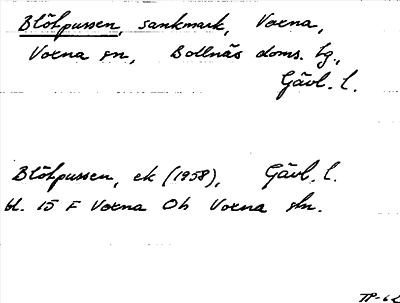 Blötpussen, sankmark, Voxna,
Voxna sn, Bollnäs doms. tg.,
Gävl. l.
Blötpussen, ek (1958), Gävl. l.
bl. 15 F Voxna Oh Voxna skn.